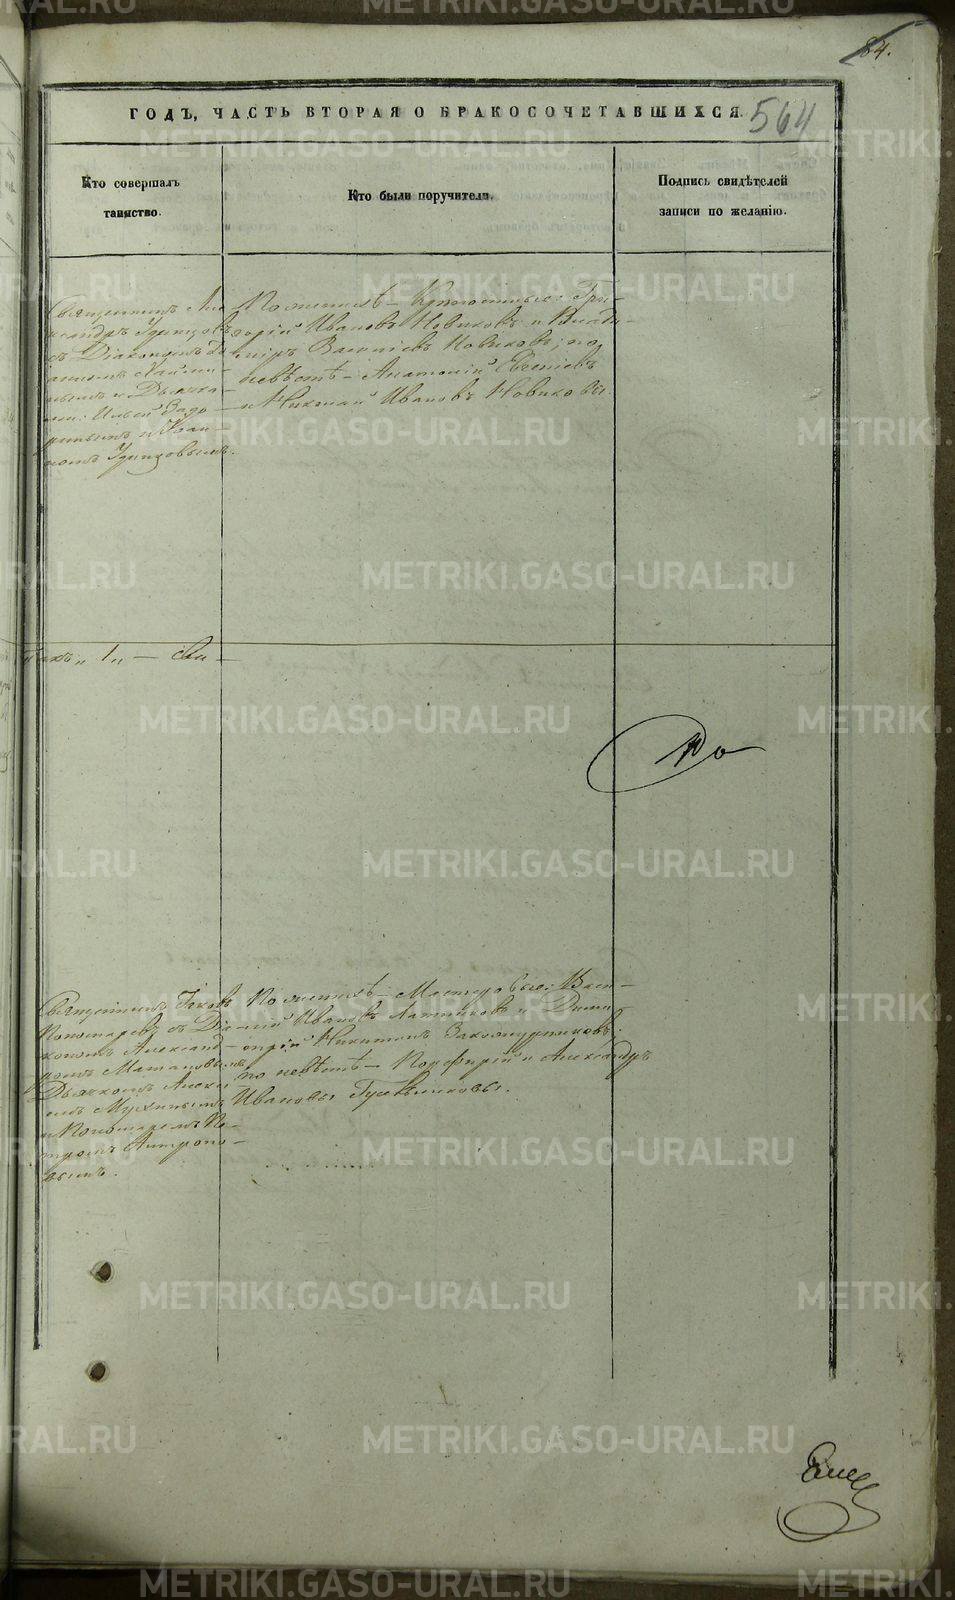 84.
564
ГОДЪ, ЧАСТЬ ВТОРАЯ О БРАКОСОЧЕТАВШИХСЯ.
Кто совершалъ
таинство.
Кто были поручители.
Подпись свидѣтелей
записи по желанію.
Священникъ Але
ксандръ Удинцовъ
съ Діакономъ
и Дьячка
ми: Ильей Задо
ринымъ и
Удинцовымъ.
По женихѣ – Гри-
горій Ивановъ Новиковъ и Влади-
міръ Васильевъ Новиковъ; по
невѣстѣ – Анатолій Евгеніевъ
и Николай Ивановъ Новиковы
„ 1 „ —
Священникъ Іаковъ
Пономаревъ съ Діа
кономъ Александ-
ромъ
Дьячкомъ Алексѣ
емъ Мухинымъ
и Пономаремъ Пе-
тромъ Антропо-
вымъ.
По женихѣ – Мастеровые: Васи-
лій Ивановъ Латниковъ и Дими-
трій Никитинъ Закожурниковъ;
по невѣстѣ – Порфирій и Александръ
Ивановы Гусельниковы.
METRIKI.GASO-URAL.RU